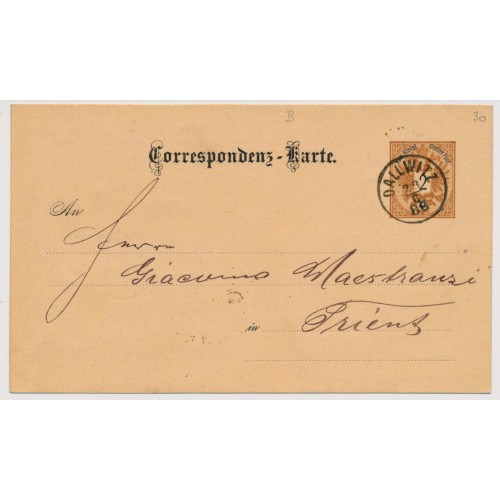 B
30
Correspondenz-Karte.
DALLWITZ
2
88
An
Herrn
Giacomo Maestranzi
in Trient